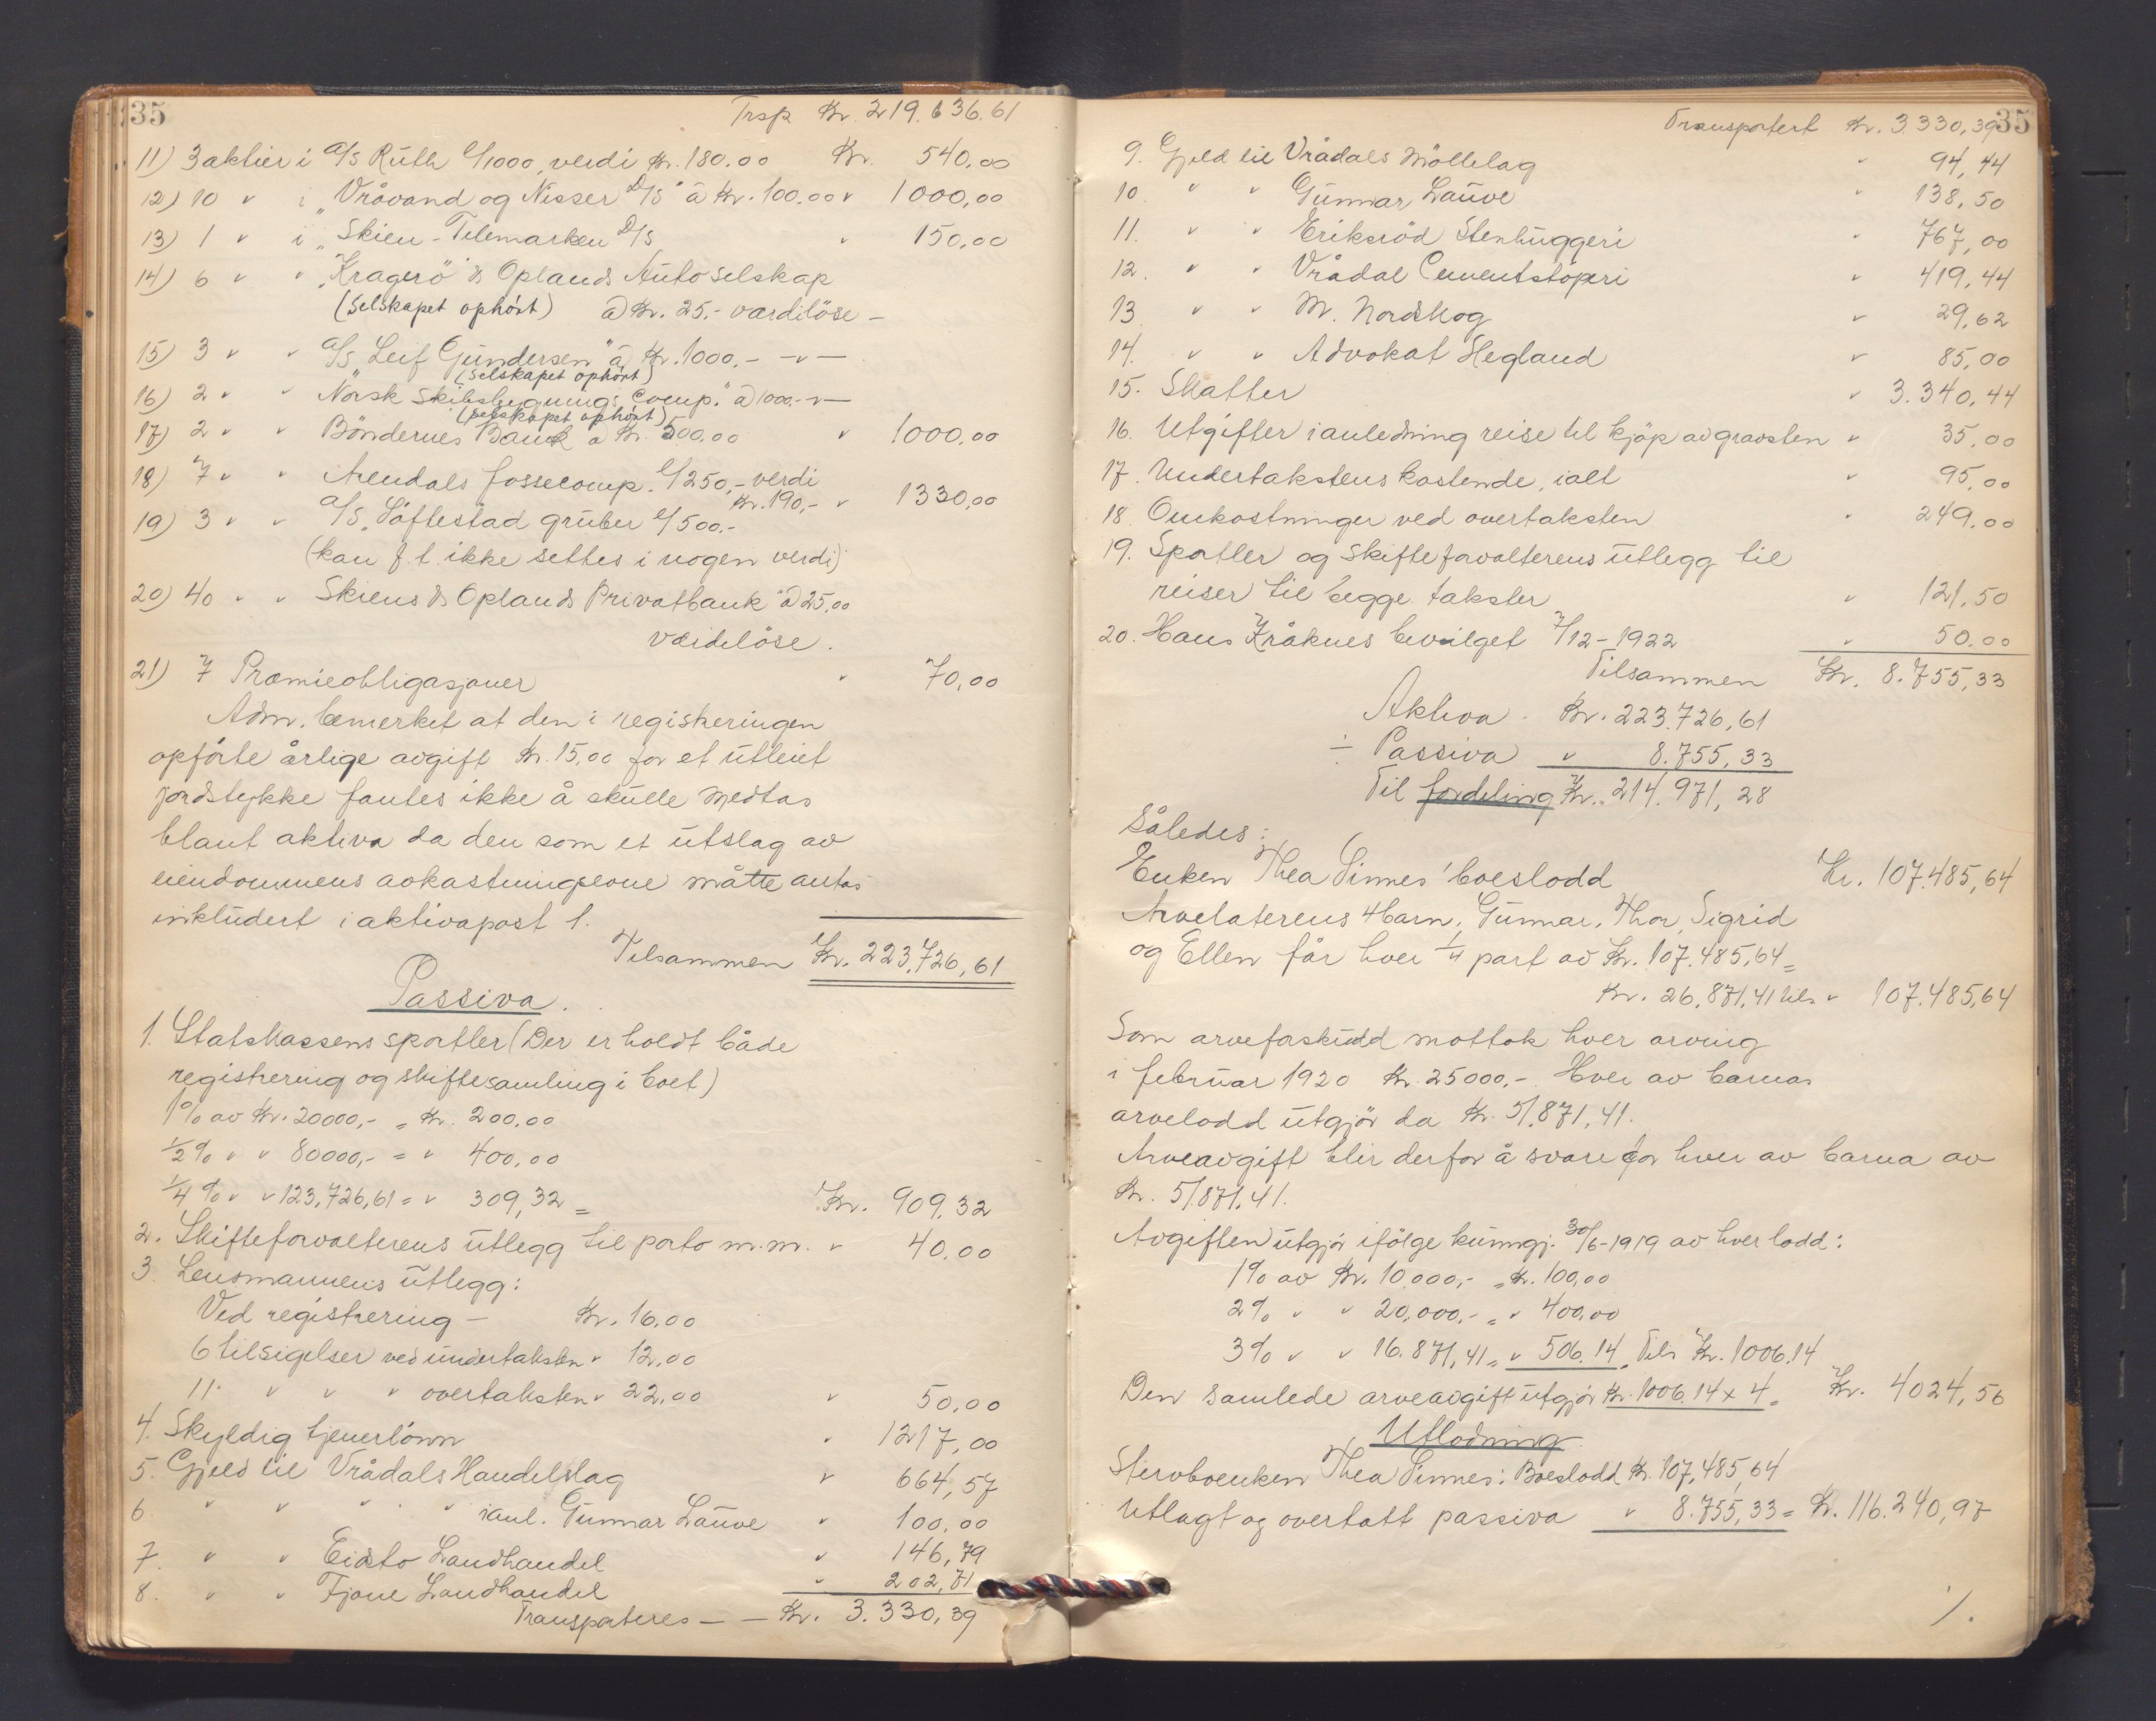 35
Trsp Kr. 219.636.61
11) 3 aktier i A/S Ruth à/1000, verdi Kr. 180.00 Kr. 540,00
12) 10 " i "Vråvand og Nisser D/S" à Kr. 100.00 " 1000,00
13) 1 " i "Skien-Telemarken D/S " 150,00
14) 6 " " "Kragerö & Oplands Autoselskap
(Selskapet ophørt) à Kr. 25.- værdilöse -
15) 3 " " A/S Leif Gundersen" à Kr. 1000.- -"-
(Selskapet ophørt)
16) 2 " " Norsk Skibsbygnings Comp." à 1000.- -"-
(Selskapet ophørt)
17) 2 " " Böndernes Bank à Kr. 500.00 " 1000,00
18) 7 " " Arendals fossecomp. à/250,- verdi
Kr. 190,- " 1330,00
19) 3 " " A/S. Söftestad gruber à/500.-
(kan f. t. ikke settes i nogen verdi)
20) 40 " " Skiens & Oplands Privatbank" à 25,00
værdilöse.
21) 7 Præmieobligasjoner " 70,00
Adm. bemerket at den i registreringen
opförte årlige avgift Kr. 15,00 for et utleiet
jordstykke fantes ikke å skulle medtas
blant aktiva da den som et utslag av
eiendommens avkastningsevne måtte antas
inkludert i aktivapost 1.
Tilsammen Kr. 223,726,61
Passiva.
1. Statskassens sportler (Der er holdt både
registrering og skiftesamling i boet)
1% av Kr. 20000,- = Kr. 200.00
1/2% " " 80000,- = " 400,00
1/4% " " 123,726,61 = " 309,32 = Kr. 909.32
2. Skifteforvalterens utlegg til porto m.m. " 40.00
3. Lensmannens utlegg:
Ved registrering - Kr. 16.00
6 tilsigelser ved undertaksten " 12,00
11 " " " overtaksten " 22,00 " 50,00
4. Skyldig tjenerlönn " 1217,00
5. Gjeld til Vrådals Handelslag " 664,57
6 " " " " i anl. Gunnar Lauve " 100,00
7. " " Eidsto Landhandel " 146,79
8. " " Fjone Landhandel " 202,71
Transporteres - - Kr. 3.330,39
35
Transportert Kr. 3.330,39
9. Gjeld til Vrådals Möllelag " 94,44
10 " " Gunnar Lauve " 138,50
11. " " Eriksröd Stenhuggeri " 767,00
12. " " Vrådal Cementstöperi " 419,44
13 " " M. Nordskog " 29,62
14. " " Advokat Hegland " 85,00
15. Skatter " 3.340,44
16. Utgifter i anledning reise til kjöp av gravsten " 35,00
17. Undertakstens kostende, ialt " 95,00
18. Omkostninger ved overtaksten " 249,00
19. Sportler og skifteforvalterens utlegg til
reiser til begge takster " 121,50
20. Hans Kråknes bevilget 7/12-1922 " 50.00
Tilsammen Kr. 8.755,33
Aktiva Kr. 223.726,61
÷ Passiva " 8.755,33
Til fordeling Kr. 214.971,28
Således:
Enken Thea Sinnes' boeslodd Kr. 107.485,64
Arvelaterens 4 barn, Gunnar, Thor, Sigrid
og Ellen får hver 1/4 part av Kr. 107.485,64 =
Kr. 26,871,41 tils " 107.485,64
Som arveforskudd mottok hver arving
i februar 1920 Kr. 25000,-. Hver av barnas
arvelodd utgjör da Kr. 51,871,41.
Arveavgift blir derfor å svare for hver av barna av
Kr. 51.871,41.
Avgiften utgjör ifölge kunngj. 30/6-1919 av hver lodd:
1% av Kr. 10.000,- = Kr. 100,00
2% " " 20,000.- = " 400,00
3% " " 16.871,41 = " 506.14 Tils Kr. 1006.14
Den samlede arveavgift utgjör Kr. 1006.14 x 4 = Kr. 4024,56
Utlodning
Stervboenken Thea Sinnes: Boeslodd Kr. 107,485,64
Utlagt og overtatt passiva " 8.755,33 = Kr. 116.240,97